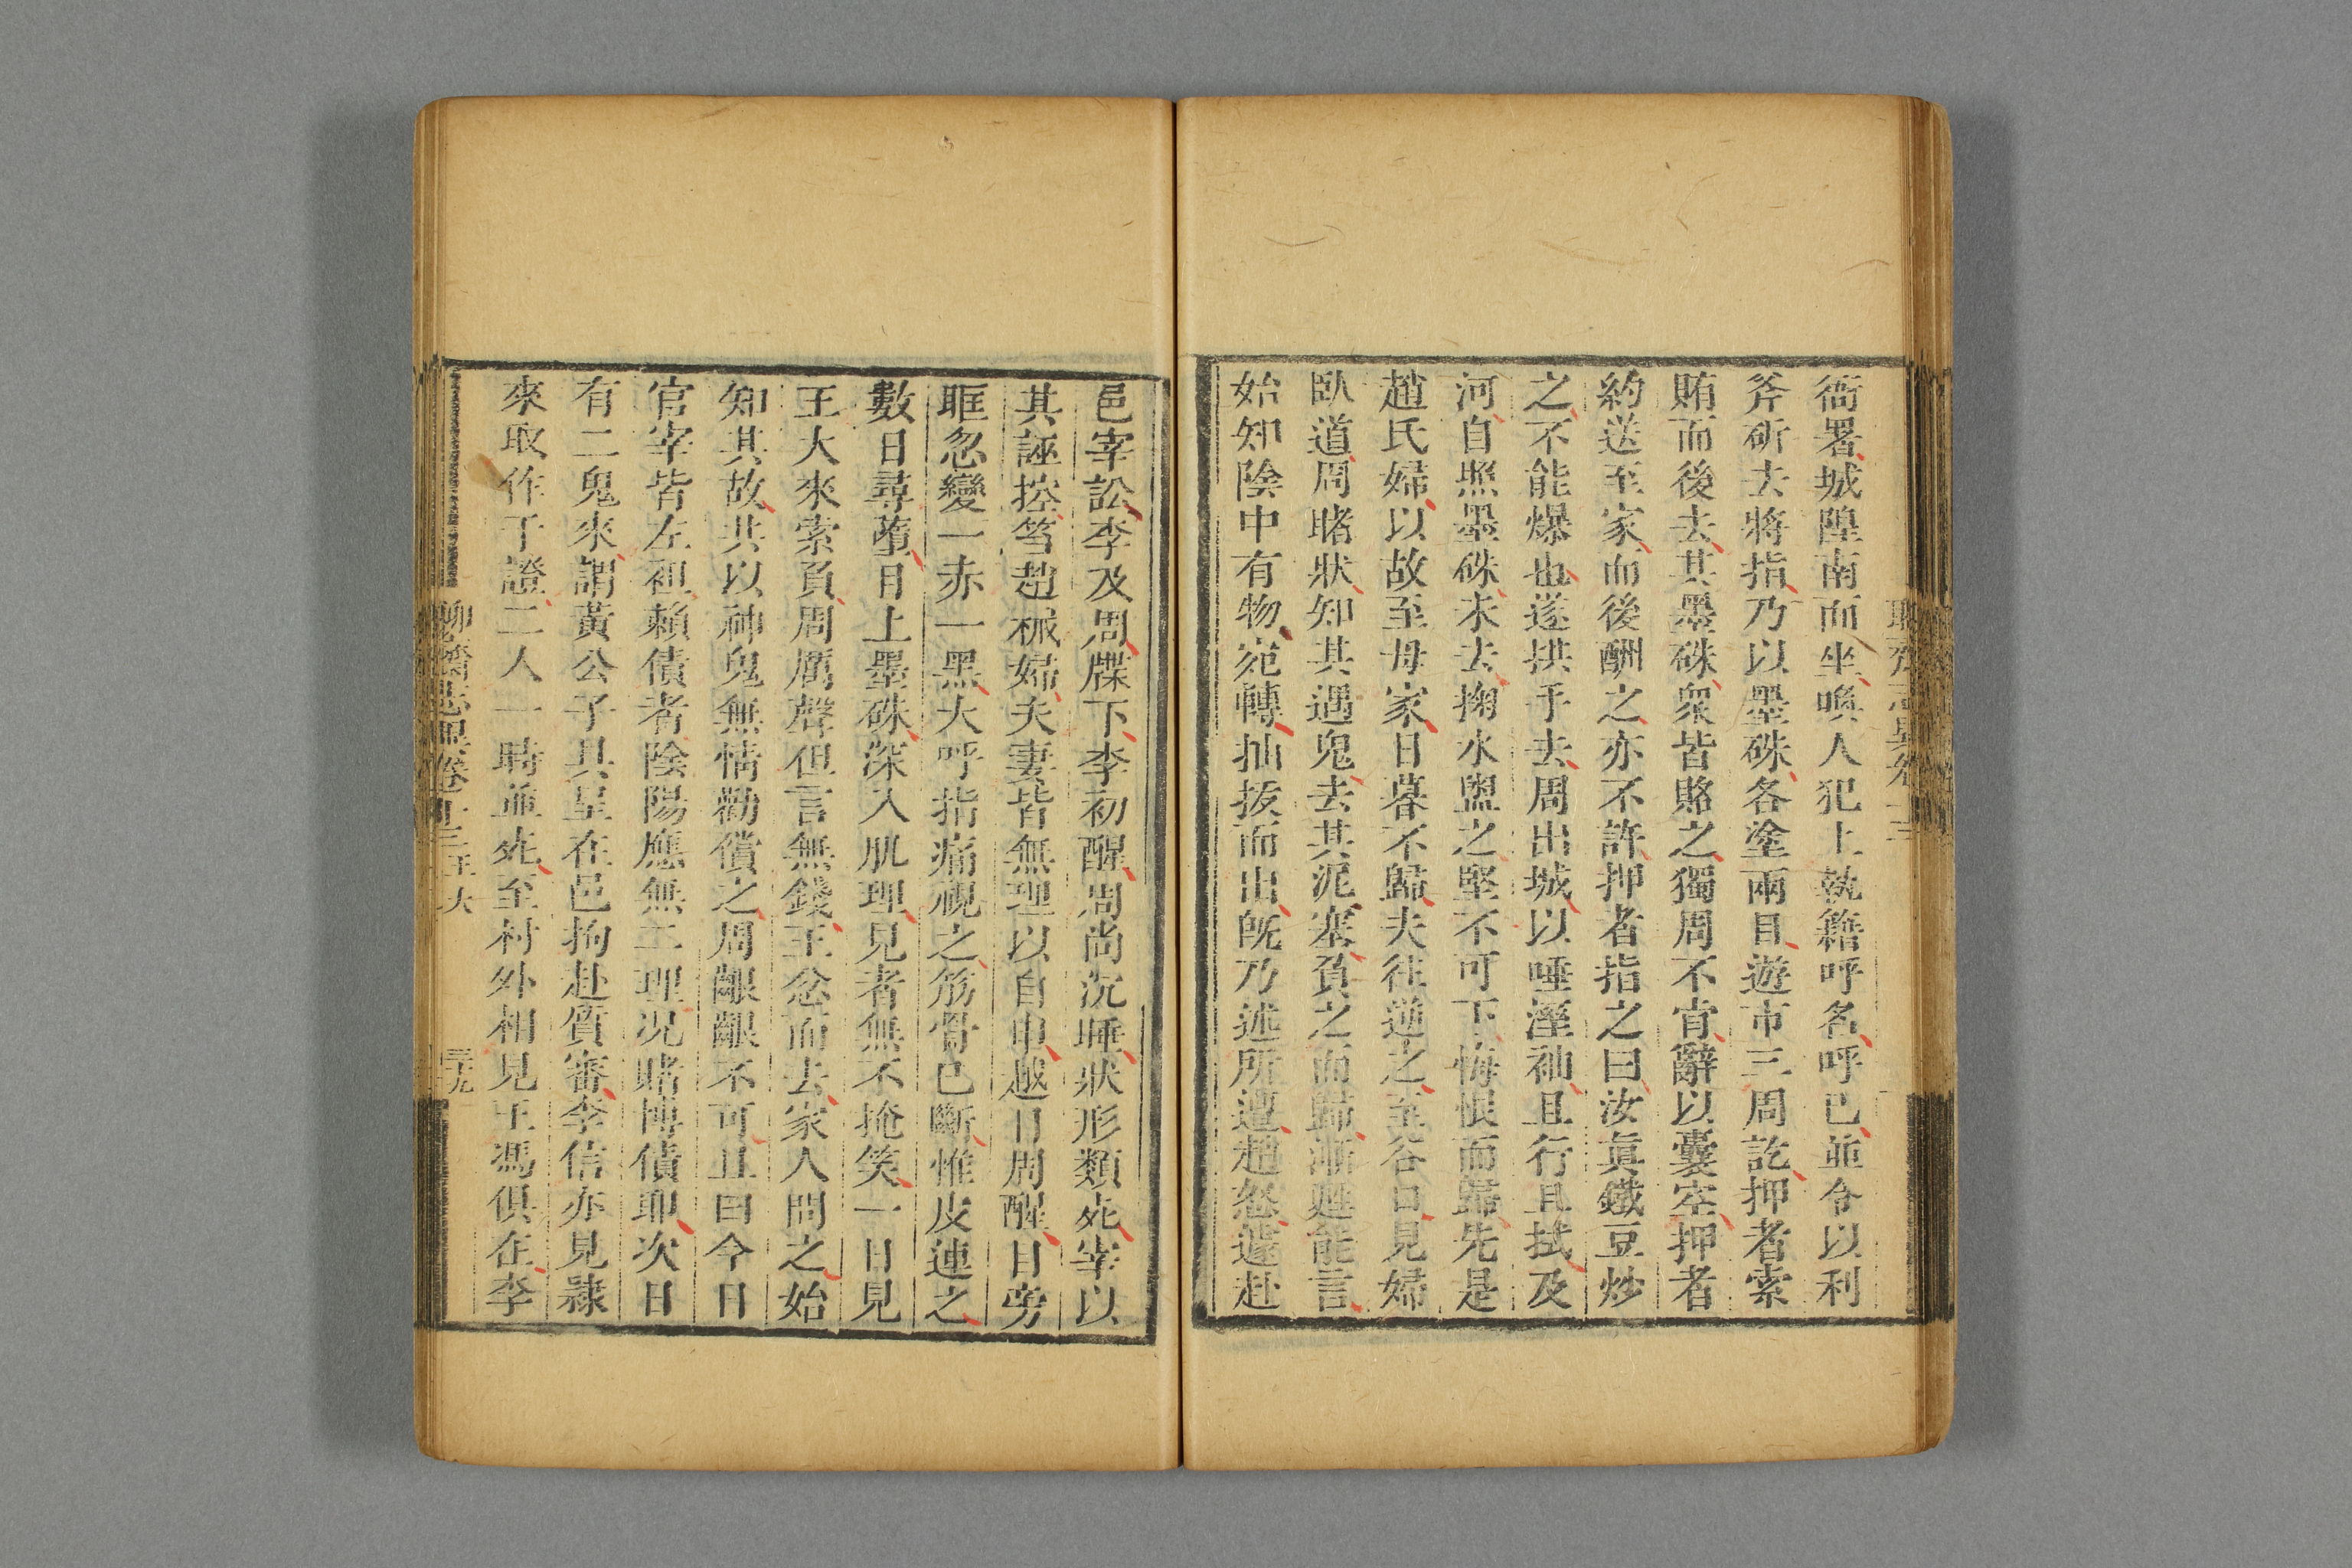 衙署城隍南面坐喚人犯上執籍呼名呼已並令以利
斧斫去將指乃以墨硃各塗兩目遊市三周訖押者索
賄而後去其墨硃衆皆賂之獨周不肯辭以囊空押者
約送至家而後酬之亦不許押者指之曰汝眞鐵豆炒
之不能爆也遂拱手去周出城以唾溼袖且行且拭及
河自照墨硃未去掬水盥之堅不可下悔恨而歸先是
趙氏婦以故至母家日暮不歸夫往逆之至谷口見婦
臥道周睹狀知其遇鬼去其泥塞負之而歸漸甦能言
始知陰中有物宛轉抽拔而出旣乃述所遭趙怒遽赴
邑宰訟李及周牒下李初醒周尚沉睡狀形類死宰以
其誣控笞趙械婦夫妻皆無理以自申越日周醒目旁
眶忽變一赤一黑大呼指痛視之筋骨已斷惟皮連之
數日尋墮目上墨硃深入肌理見者無不掩笑一日見
王大來索負周厲聲但言無錢王忿而去家人問之始
知其故共以神鬼無情勸償之周齦齦不可且曰今日
官宰皆左袒賴債者陰陽應無二理况賭博債耶次日
有二鬼來謂黃公子具呈在邑拘赴質審李信亦見隸
來取作干證二人一時並死至村外相見王馮俱在李
聊齋志異卷十三 王大 三十九